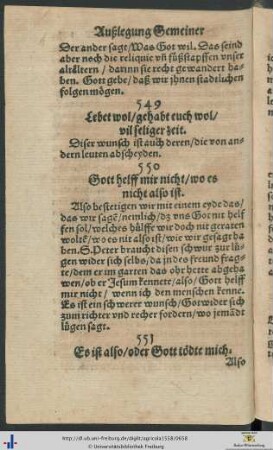 Außlegung Gemeiner
Der ander sagt/Was Got wil. Das seind
aber noch die reliquie vñ fůßstapffen vnser
alrältern / darinn sie recht gewandert ha-
ben. Gott gebe/daß wir jhnen stadtlichen
folgen mögen.
549
Lebet wol/gehabt euch wol/
vil seliger zeit.
Diser wunsch ist auch deren/die von an-
dern leuten abscheyden.
550
Gott helff mir nicht/wo es
nicht also ist.
Also bestetigen wir mit einem eyde das/
das wir sagẽ/nemlich/dz vns Got nit helf
fen sol/welches hülffe wir doch nit geraten
woltẽ/wo es nit also ist/wie wir gesagt ha
ben. S. Peter braucht disen schwůr zur lü-
gen wider sich selbs/da jn des freund frag-
te/dem er im garten das ohr hette abgeha
wen/ob er Jesum kennete/also/Gott helff
mir nicht/ wenn ich den menschen kenne.
Es ist ein schwerer wunsch/Got wider sich
zum richter vnd recher fordern/wo jemãdt
lügen sagt.
551
Es ist also/oder Gott tödte mich.
Also
http://dl.ub.uni-freiburg.de/diglit/agricola1558/0658
© Universitätsbibliothek Freiburg